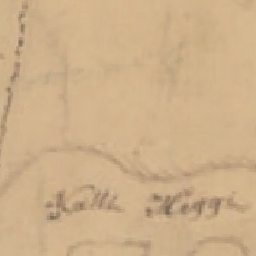 Kalli Heggi